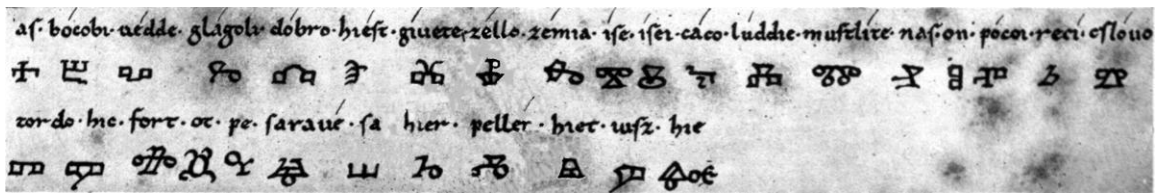 as· bócobi· uedde· glágoli· dóbro· hiest· giuete· zello· zémia· ise· isei· caco· luddie· mustlite· nas· on· pócoi· reci· cslouo
ⰰ ⰱ ⰲ ⰳ ⰴ ⰵ ⰶ ⰷ ⰸ ⰹ ⰻ ⰽ ⰾ ⰿ ⱀ ⱁ ⱂ ⱃ ⱄ
tordo· hic· fort· ot· pe· saraué· sa hier· pellér· hiet· iusz· hie